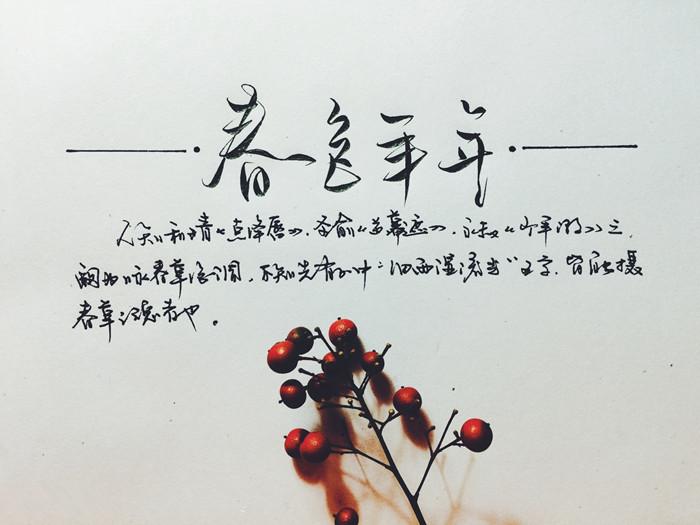 春色年年
人知和靖《点绛唇》、圣俞《苏幕遮》、永叔《少年游》三
阕为咏春草绝调。不知先有正中“细雨湿流光”五字，皆能摄
春草之魂者也。